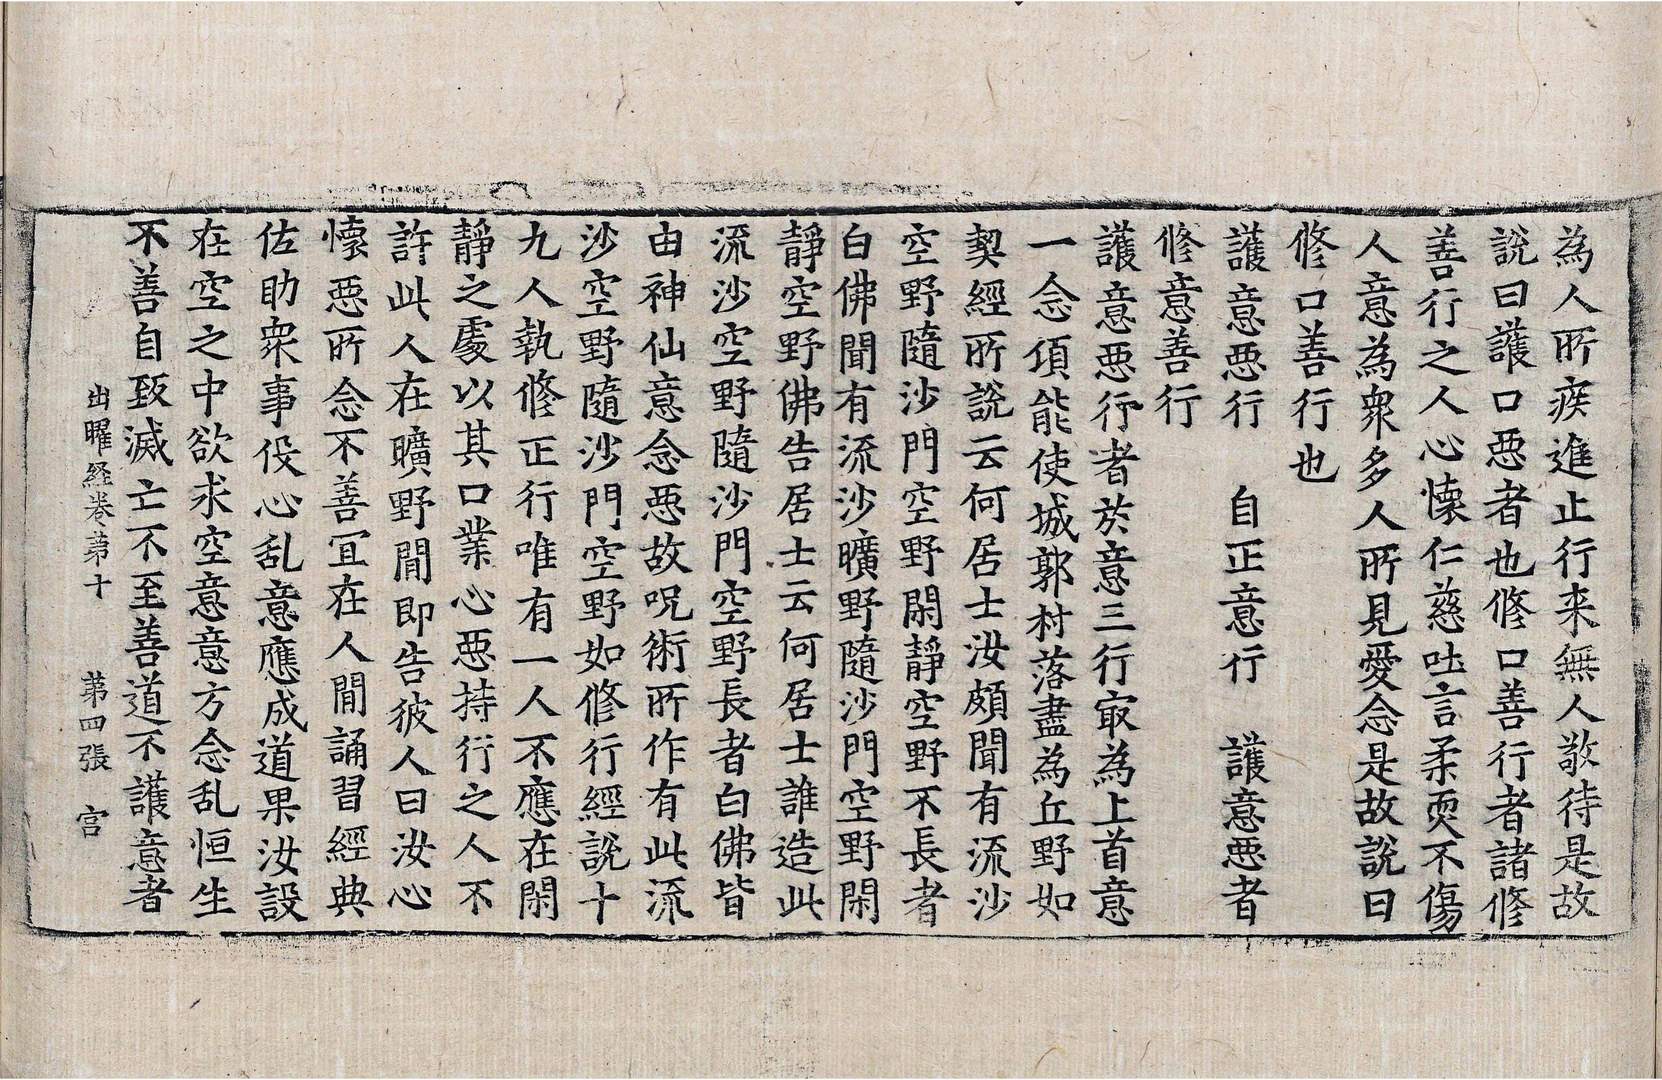 為人所疾進止行来無人敬待是故
說曰護口惡者也修口善行者諸修
善行之人心懷仁慈吐言柔耎不傷
人意為衆多人所見愛念是故說曰
修口善行也
護意惡行　自正意行　護意惡者
修意善行
護意惡行者於意三行㝡為上首意
一念頃能使城郭村落盡為丘野如
契經所說云何居士汝頗聞有流沙
空野隨沙門空野閑靜空野不長者
白佛聞有流沙曠野隨沙門空野閑
靜空野佛告居士云何居士誰造此
流沙空野隨沙門空野長者白佛皆
由神仙意念惡故呪術所作有此流
沙空野隨沙門空野如修行經說十
九人執修正行唯有一人不應在閑
靜之處以其口業心惡持行之人不
許此人在曠野間即告彼人曰汝心
懷惡所念不善冝在人間誦習經典
佐助衆事伇心乱意應成道果汝設
在空之中欲求空意意方念乱恒生
不善自致滅亡不至善道不護意者
出曜経卷第十　第四張　宫